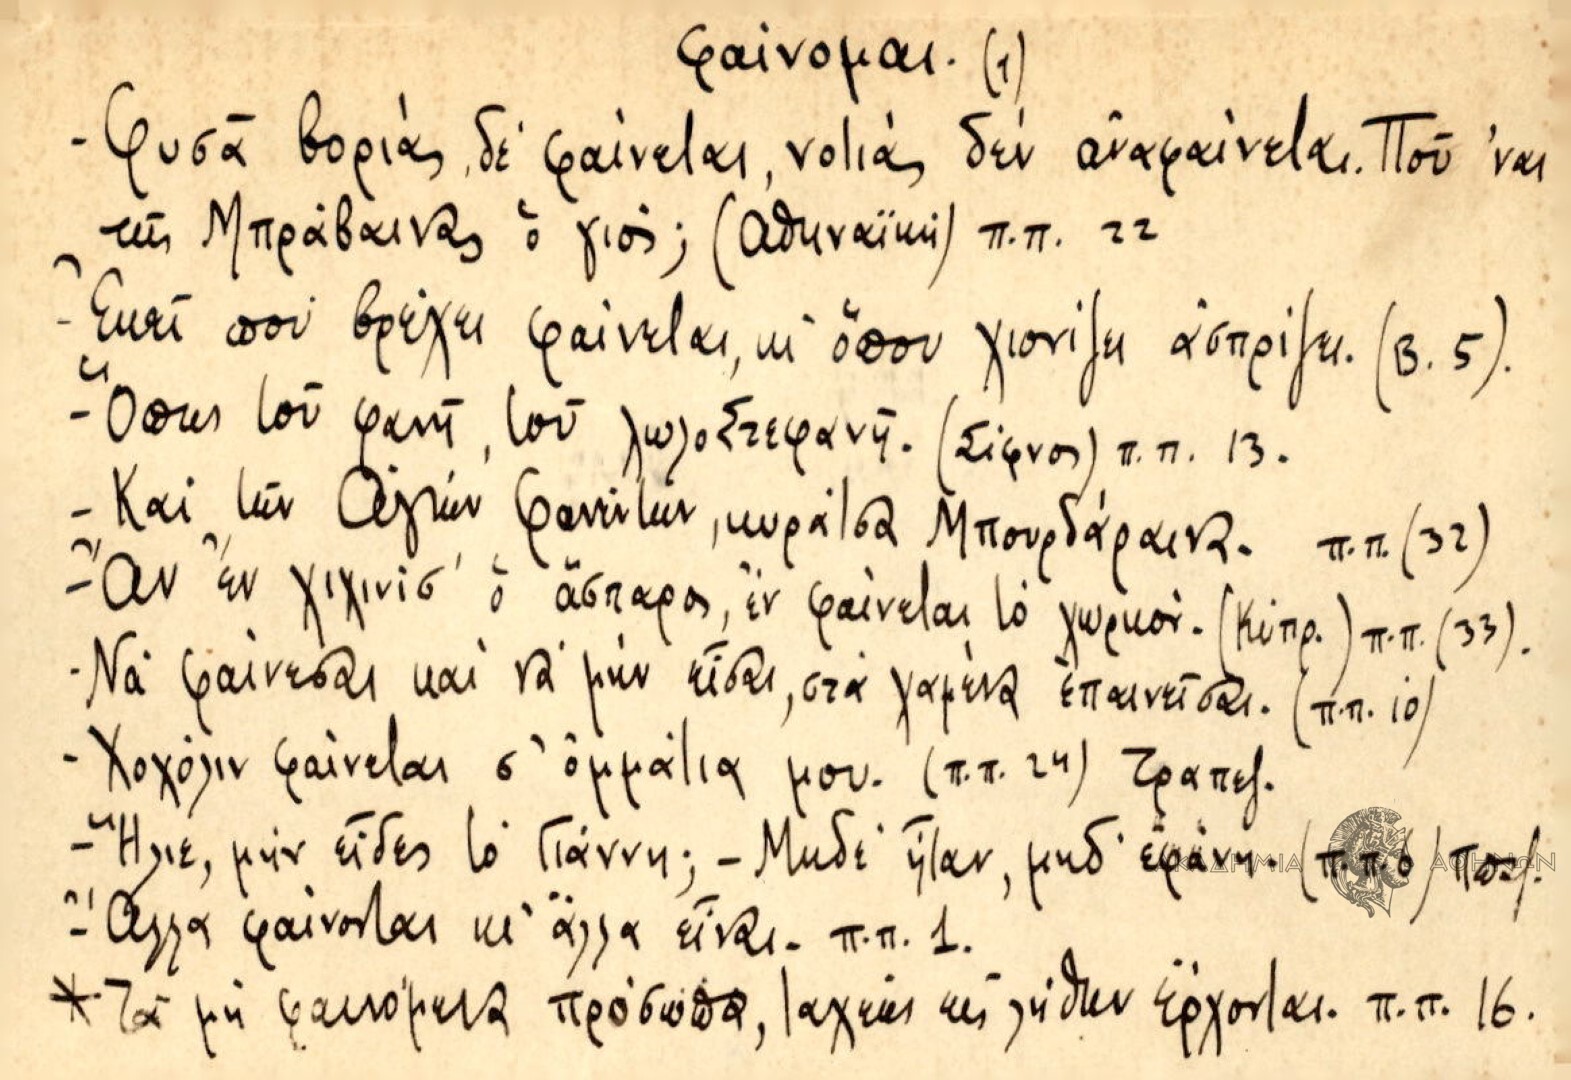 φαίνομαι. (1)
- Φυσᾶ βοριάς, δέ φαίνεται, νοτιάς δέν ἀναφαίνεται. Ποῦ 'ναι
τῆς Μπράβαινας ὁ γιός; (Ἀθηναϊκή) π.π. 22
- Ἐκεῖ πού βρέχει φαίνεται, κι' ὅπου χιονίζει ἀσπρίζει. (Β. 5).
- Ὅπως τοῦ φανῆ, τοῦ λωλοΣτεφανῆ. (Σίφνος) π.π. 13.
- Καί τήν φανῆν την, κυράτσα Μπουρδάραινα. π.π. (32)
- Ἄν ἔν χιχινίσ' ὁ ἄσπαρος, ἔν φαίνεται τό χωρκόν. (Κύπρ.) π.π. (33).
- Νά φαίνεσαι καί νά μήν εἶσαι, στά χαμένα ἐπαινεῖσαι. (π.π. 10)
- Χοχόλιν φαίνεται σ' ὀμμάτια μου. (π.π. 24) Τραπεζ.
- Ἥλιε, μήν εἶδες τό Γιάννη; - Μηδέ ἦταν, μηδ' ἐφάνη. (π.π. 6)
- Ἄλλα φαίνονται κι' ἄλλα εἶναι. π.π. 1.
* Τά μή φαινόμενα πρόσωπα, ταχέως εἰς λήθην ἔρχονται. π.π. 16.
ΑΚΑΔΗΜΙΑ ΑΘΗΝΩΝ